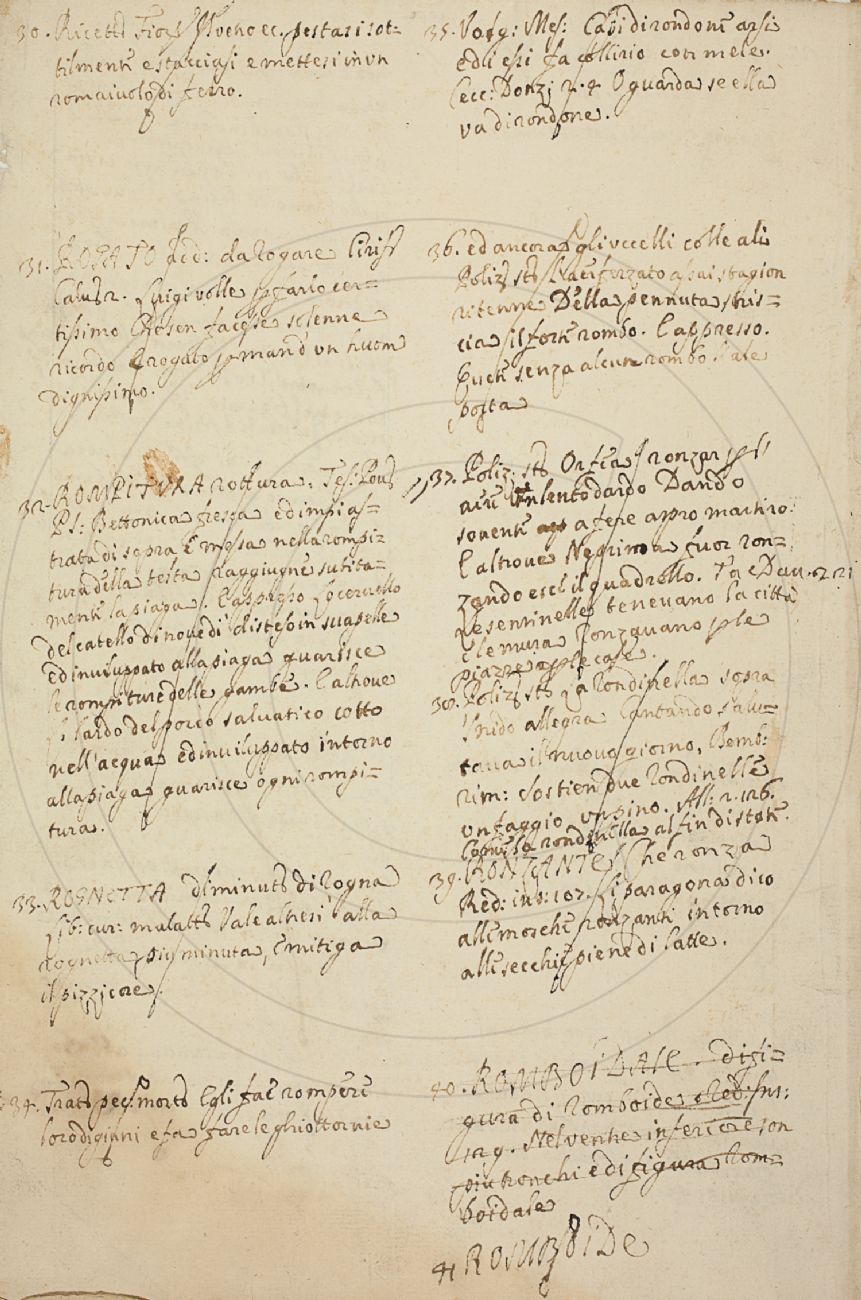 30. Ricett: Fior: Fuoco ec. pestasi sot=
tilmente e stacciasi e mettesi in un
romaiuolo di ferro.
31. ROGATO Add: da Rogare Ciriff
Calu: 2. Luigi volle p farlo cer=
tissimo Ch' osen facesse solenne
ricordo E rogato p mand' un huom
dignissimo.
32. ROMPITURA rottura. Tes: Pou:
P: S: Bettonica fresca ed impias=
trata di sopra e messa nella rompi=
tura della testa raggiugne subita=
mente la piaga. E appresso Lo ceruello
del catello di noue dì disteso in sua pelle
ed inuiluppato alla piaga guarisce
le rompiture delle gambe. E altroue
Il lardo del porco saluatico cotto
nell' acqua ed inuiluppato intorno
alla piaga guarisce ogni rompi=
tura.
33. ROGNETTA diminut: di Rogna
Lib: cur: malatt: Vale altresì alla
rognetta più minuta, e mitiga
il pizzicore.
34. Tratt: pecc: mort: Egli fae rompere
loro digiuni e fa fare le ghiottornie
35. Volg: Mes: Capi di rondoni arsi
ed essi fa collirio con mele.
Cecc: Donz: 2. 4 O guarda se ella
va di rondone.
36. ed ancora gli uccelli colle ali
Poliz: st: Zaffir forzato assai stagion
ritenne Della pennuta stris=
cia il forte rombo. E appresso.
Giace senza alcun rombo l' ale
posta
37. Poliz: st: Or fea ronzar p l'
aure un lento dardo Dando
souente a fere aspro martiro.
E altroue Negrima fuor ron=
zando esce il quadrello. Ta e Dau. 2. 21
le sentinelle teneuano la città
e le mura Ronzauano p le
piazze e p le case.
38. Poliz: st: La Rondinella sopra
l' nido allegra Cantando salu=
taua il nuouo giorno, Bemb:
rim: Sostien due Rondinelle
un faggio un pino. All: 2. 126.
Come la rondinella al fin di state.
39. RONZANTE Che ronza
Red: ins: 107. Si paragona dico
alle mosche ronzanti intorno
alle secchie piene di latte.
40. ROMBOIDALE. di fi=
gura di Romboide Red. Ins:
149. Nel ventre inferiore son
più tronchi e di figura Rom=
boidale
41 ROMBOIDE